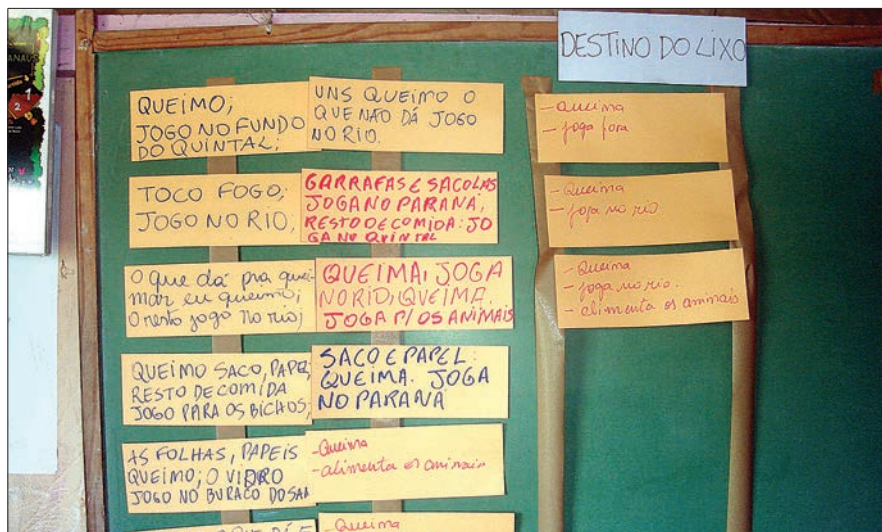 DESTINO DO LIXO
QUEIMO;
JOGO NO FUNDO
DO QUINTAL;
TOCO FOGO;
JOGO NO RIO;
O que dá pra quei-
mar eu queimo;
O resto jogo no rio;
QUEIMO SACO, PAPEL,
RESTO DE COMIDA
JOGO PARA OS BICHOS;
AS FOLHAS, PAPEIS
QUEIMO; O VIDRO
JOGO NO BURACO DO
UNS QUEIMO O
QUE NÃO DÁ JOGO
NO RIO.
GARRAFAS E SACOLAS
JOGA NO PARANÁ;
RESTO DE COMIDA: JO
GA NO QUINTAL
QUEIMA, JOGA
NO RIO, QUEIMA.
JOGA P/ OS ANIMAIS
SACO E PAPEL:
QUEIMA. JOGA
NO PARANÁ
-Queima
-alimenta os animais
-Queima
-Queima
-joga fora
-Queima
-joga no rio
-Queima
-joga no rio.
-alimenta os animais